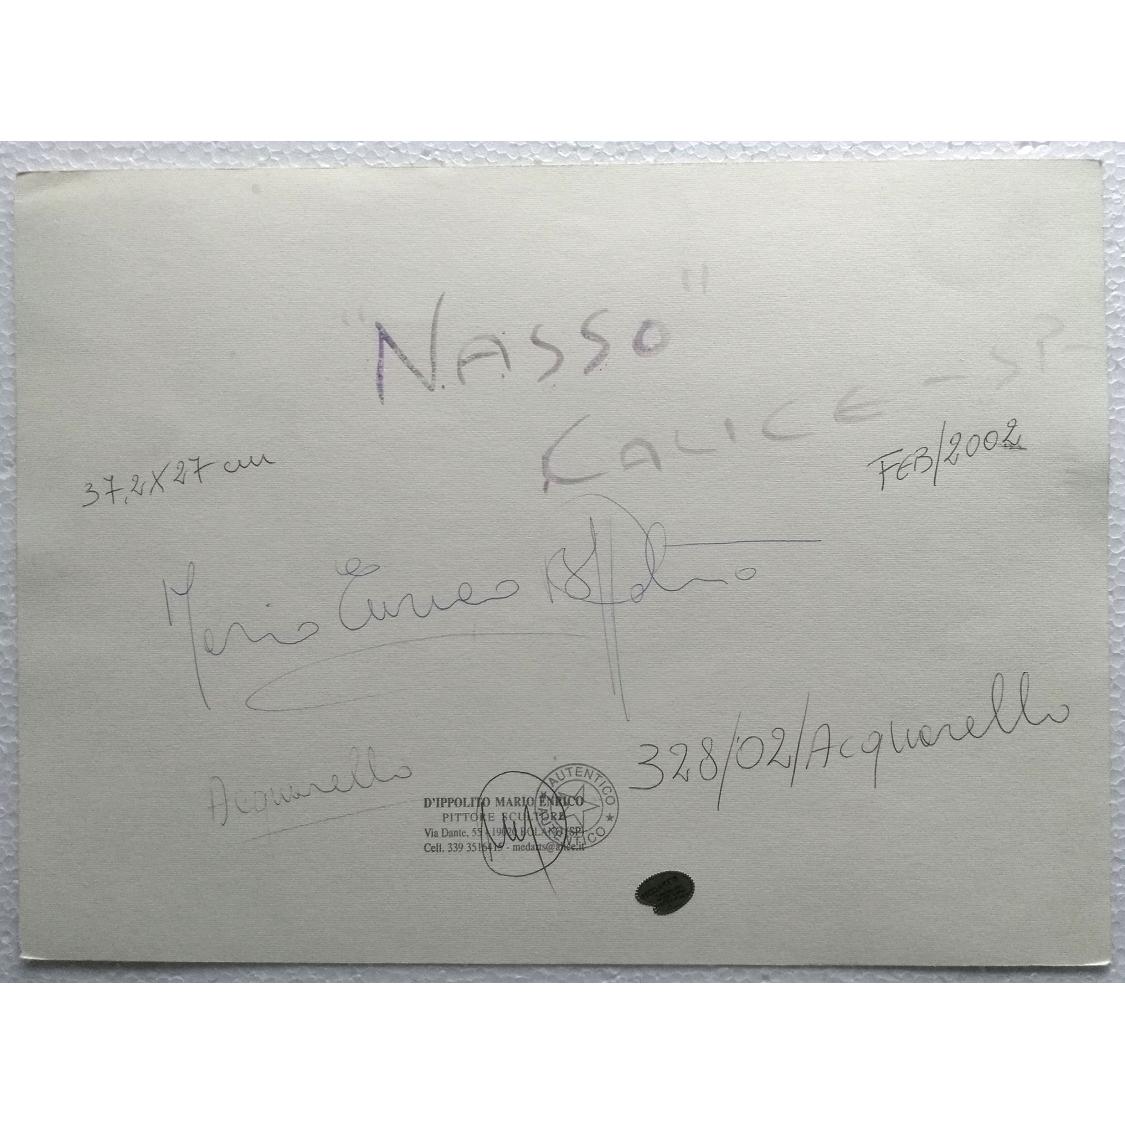 "NASSO"
CALICE - SP-
37,2X27 cm
FEB/2002
Mario Enrico D'Ippolito
328/02/Acquarello
Acquarello
AUTENTICO
AUTENTICO
D'IPPOLITO MARIO ENRICO
PITTORE SCULTORE
Via Dante, 55 - 19020 BOLANO (SP)
Cell. 339 3516415 - medarts@